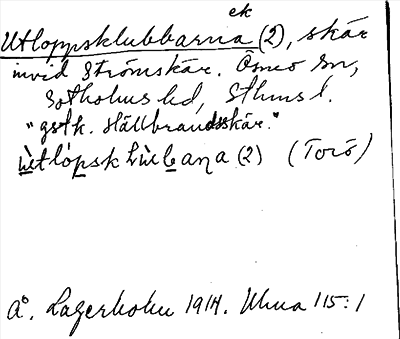 ek
Utloppsklubbarna (2), skär
invid Strömskär. Ösmo sn,
Sotholms hd, Sthms l.
"gstk. Hällbrandsskär."
ùtlópskl̀ùbaṇa (2) (Torö)
Ao. Lagerholm 1914. Uhua 115:1